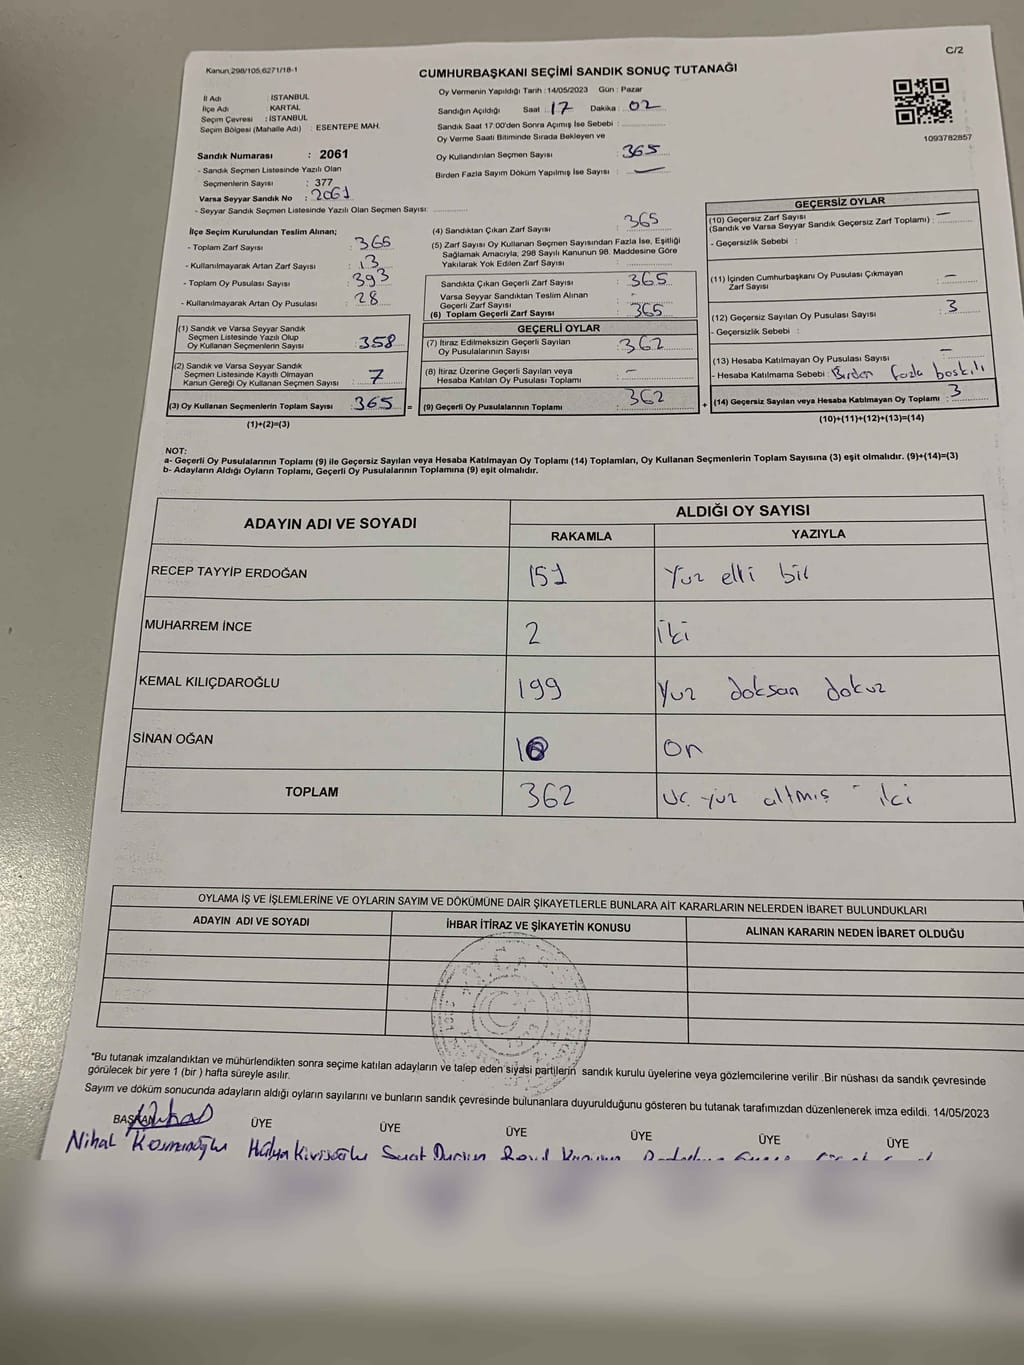 C/2
Kanun,298/105,6271/18-1
CUMHURBAŞKANI SEÇİMİ SANDIK SONUÇ TUTANAĞI
İl Adı : İSTANBUL
İlçe Adı : KARTAL
Seçim Çevresi : İSTANBUL
Seçim Bölgesi (Mahalle Adı) : ESENTEPE MAH.
Sandık Numarası : 2061
- Sandık Seçmen Listesinde Yazılı Olan
Seçmenlerin Sayısı : 377
Varsa Seyyar Sandık No : 2061
- Seyyar Sandık Seçmen Listesinde Yazılı Olan Seçmen Sayısı:
Oy Vermenin Yapıldığı Tarih :14/05/2023 Gün : Pazar
Sandığın Açıldığı Saat 17 Dakika : 02
Sandık Saat 17:00'den Sonra Açımış İse Sebebi :
Oy Verme Saati Bitiminde Sırada Bekleyen ve
Oy Kullandırılan Seçmen Sayısı : 365
Birden Fazla Sayım Döküm Yapılmış İse Sayısı : —
1093782857
İlçe Seçim Kurulundan Teslim Alınan;
- Toplam Zarf Sayısı : 365
- Kullanılmayarak Artan Zarf Sayısı : 13
- Toplam Oy Pusulası Sayısı : 393
- Kullanılmayarak Artan Oy Pusulası : 28
(1) Sandık ve Varsa Seyyar Sandık
Seçmen Listesinde Yazılı Olup
Oy Kullanan Seçmenlerin Sayısı : 358
(2) Sandık ve Varsa Seyyar Sandık
Seçmen Listesinde Kayıtlı Olmayan
Kanun Gereği Oy Kullanan Seçmen Sayısı : 7
(3) Oy Kullanan Seçmenlerin Toplam Sayısı : 365 =
(1)+(2)=(3)
(4) Sandıktan Çıkan Zarf Sayısı : 365
(5) Zarf Sayısı Oy Kullanan Seçmen Sayısından Fazla İse, Eşitliği
Sağlamak Amacıyla, 298 Sayılı Kanunun 98. Maddesine Göre
Yakılarak Yok Edilen Zarf Sayısı :
Sandıkta Çıkan Geçerli Zarf Sayısı : 365
Varsa Seyyar Sandıktan Teslim Alınan
Geçerli Zarf Sayısı : -
(6) Toplam Geçerli Zarf Sayısı : 365
GEÇERLİ OYLAR
(7) İtiraz Edilmeksizin Geçerli Sayılan
Oy Pusulalarının Sayısı : 362
(8) İtiraz Üzerine Geçerli Sayılan veya
Hesaba Katılan Oy Pusulası Toplamı : -
(9) Geçerli Oy Pusulalarının Toplamı : 362 +
GEÇERSİZ OYLAR
(10) Geçersiz Zarf Sayısı —
(Sandık ve Varsa Seyyar Sandık Geçersiz Zarf Toplamı) :
- Geçersizlik Sebebi :
(11) İçinden Cumhurbaşkanı Oy Pusulası Çıkmayan
Zarf Sayısı : —
(12) Geçersiz Sayılan Oy Pusulası Sayısı : 3
- Geçersizlik Sebebi :
(13) Hesaba Katılmayan Oy Pusulası Sayısı : —
- Hesaba Katılmama Sebebi : Birden fazla baskılı
(14) Geçersiz Sayılan veya Hesaba Katılmayan Oy Toplamı : 3
(10)+(11)+(12)+(13)=(14)
NOT:
a- Geçerli Oy Pusulalarının Toplamı (9) ile Geçersiz Sayılan veya Hesaba Katılmayan Oy Toplamı (14) Toplamları, Oy Kullanan Seçmenlerin Toplam Sayısına (3) eşit olmalıdır. (9)+(14)=(3)
b- Adayların Aldığı Oyların Toplamı, Geçerli Oy Pusulalarının Toplamına (9) eşit olmalıdır.
ADAYIN ADI VE SOYADI
ALDIĞI OY SAYISI
RAKAMLA YAZIYLA
RECEP TAYYİP ERDOĞAN 151 Yüz elli bir
MUHARREM İNCE 2 İki
KEMAL KILIÇDAROĞLU 199 Yuz doksan dokuz
SİNAN OĞAN 10 On
TOPLAM 362 Uc yüz altmış iki
OYLAMA İŞ VE İŞLEMLERİNE VE OYLARIN SAYIM VE DÖKÜMÜNE DAİR ŞİKAYETLERLE BUNLARA AİT KARARLARIN NELERDEN İBARET BULUNDUKLARI
ADAYIN ADI VE SOYADI İHBAR İTİRAZ VE ŞİKAYETİN KONUSU ALINAN KARARIN NEDEN İBARET OLDUĞU
*Bu tutanak imzalandıktan ve mühürlendikten sonra seçime katılan adayların ve talep eden siyasi partilerin sandık kurulu üyelerine veya gözlemcilerine verilir .Bir nüshası da sandık çevresinde
görülecek bir yere 1 (bir ) hafta süreyle asılır.
Sayım ve döküm sonucunda adayların aldığı oyların sayılarını ve bunların sandık çevresinde bulunanlara duyurulduğunu gösteren bu tutanak tarafımızdan düzenlenerek imza edildi. 14/05/2023
BAŞKAN ÜYE ÜYE ÜYE ÜYE ÜYE ÜYE
Nihal